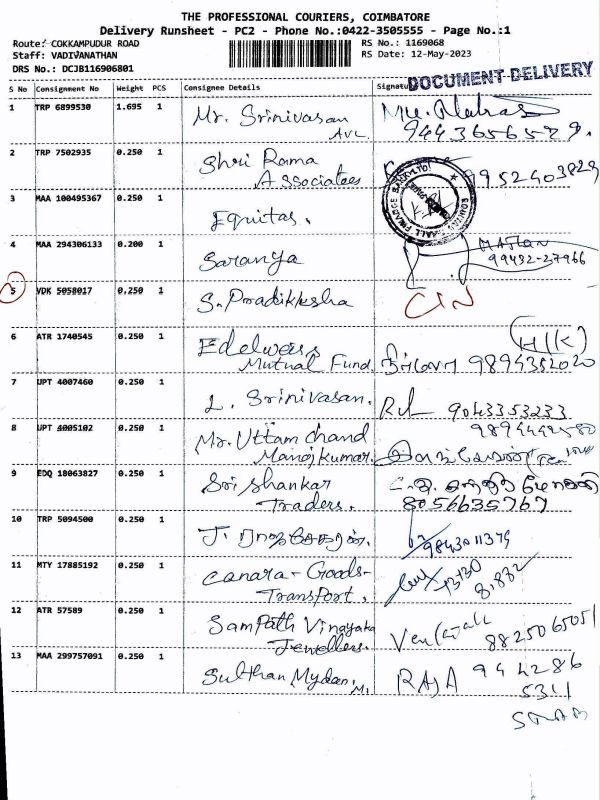 THE PROFESSIONAL COURIERS, COIMBATORE
Delivery Runsheet - PC2 - Phone No.:0422-3505555 - Page No.:1
Route: COKKAMPUDUR ROAD
RS No.: 1169068
Staff: VADIVANATHAN
RS Date: 12-May-2023
DRS No.: DCJB116906801
DOCUMENT DELIVERY
S No Consignment No Weight PCS Consignee Details
1 TRP 6899530 1.695 1 Mr. Srinivasan
AVL
9443656579.
2 TRP 7502935 0.250 1 Shri Rama
Associates 9952403829
3 MAA 100495367 0.250 1 Equitas.
4 MAA 294306133 0.200 1 Saranya
99432-27966
5 VDK 5058017 0.250 1 S. Pradikksha
6 ATR 1740545 0.250 1 Edelweiss (H/K)
Mutual Fund. நிர்மலா 9894352020
7 UPT 4007460 0.250 1 L. Srinivasan. 9043353233
8 UPT 4005102 0.250 1 Mr. Uttam chand
Manoj kumar.
9 EDQ 18063827 0.250 1 Sri Shankar
Traders. 8056635767
10 TRP 5094500 0.250 1 J. ராஜசேகரன். 9843011379
11 MTY 17885192 0.250 1 Canara-Goods-
Transport.
12 ATR 57589 0.250 1 Sampath Vinayaka
Jewellers. 8825065051
13 MAA 299757091 0.250 1 Sulthan Mydan. M. RAJA 944286
5311